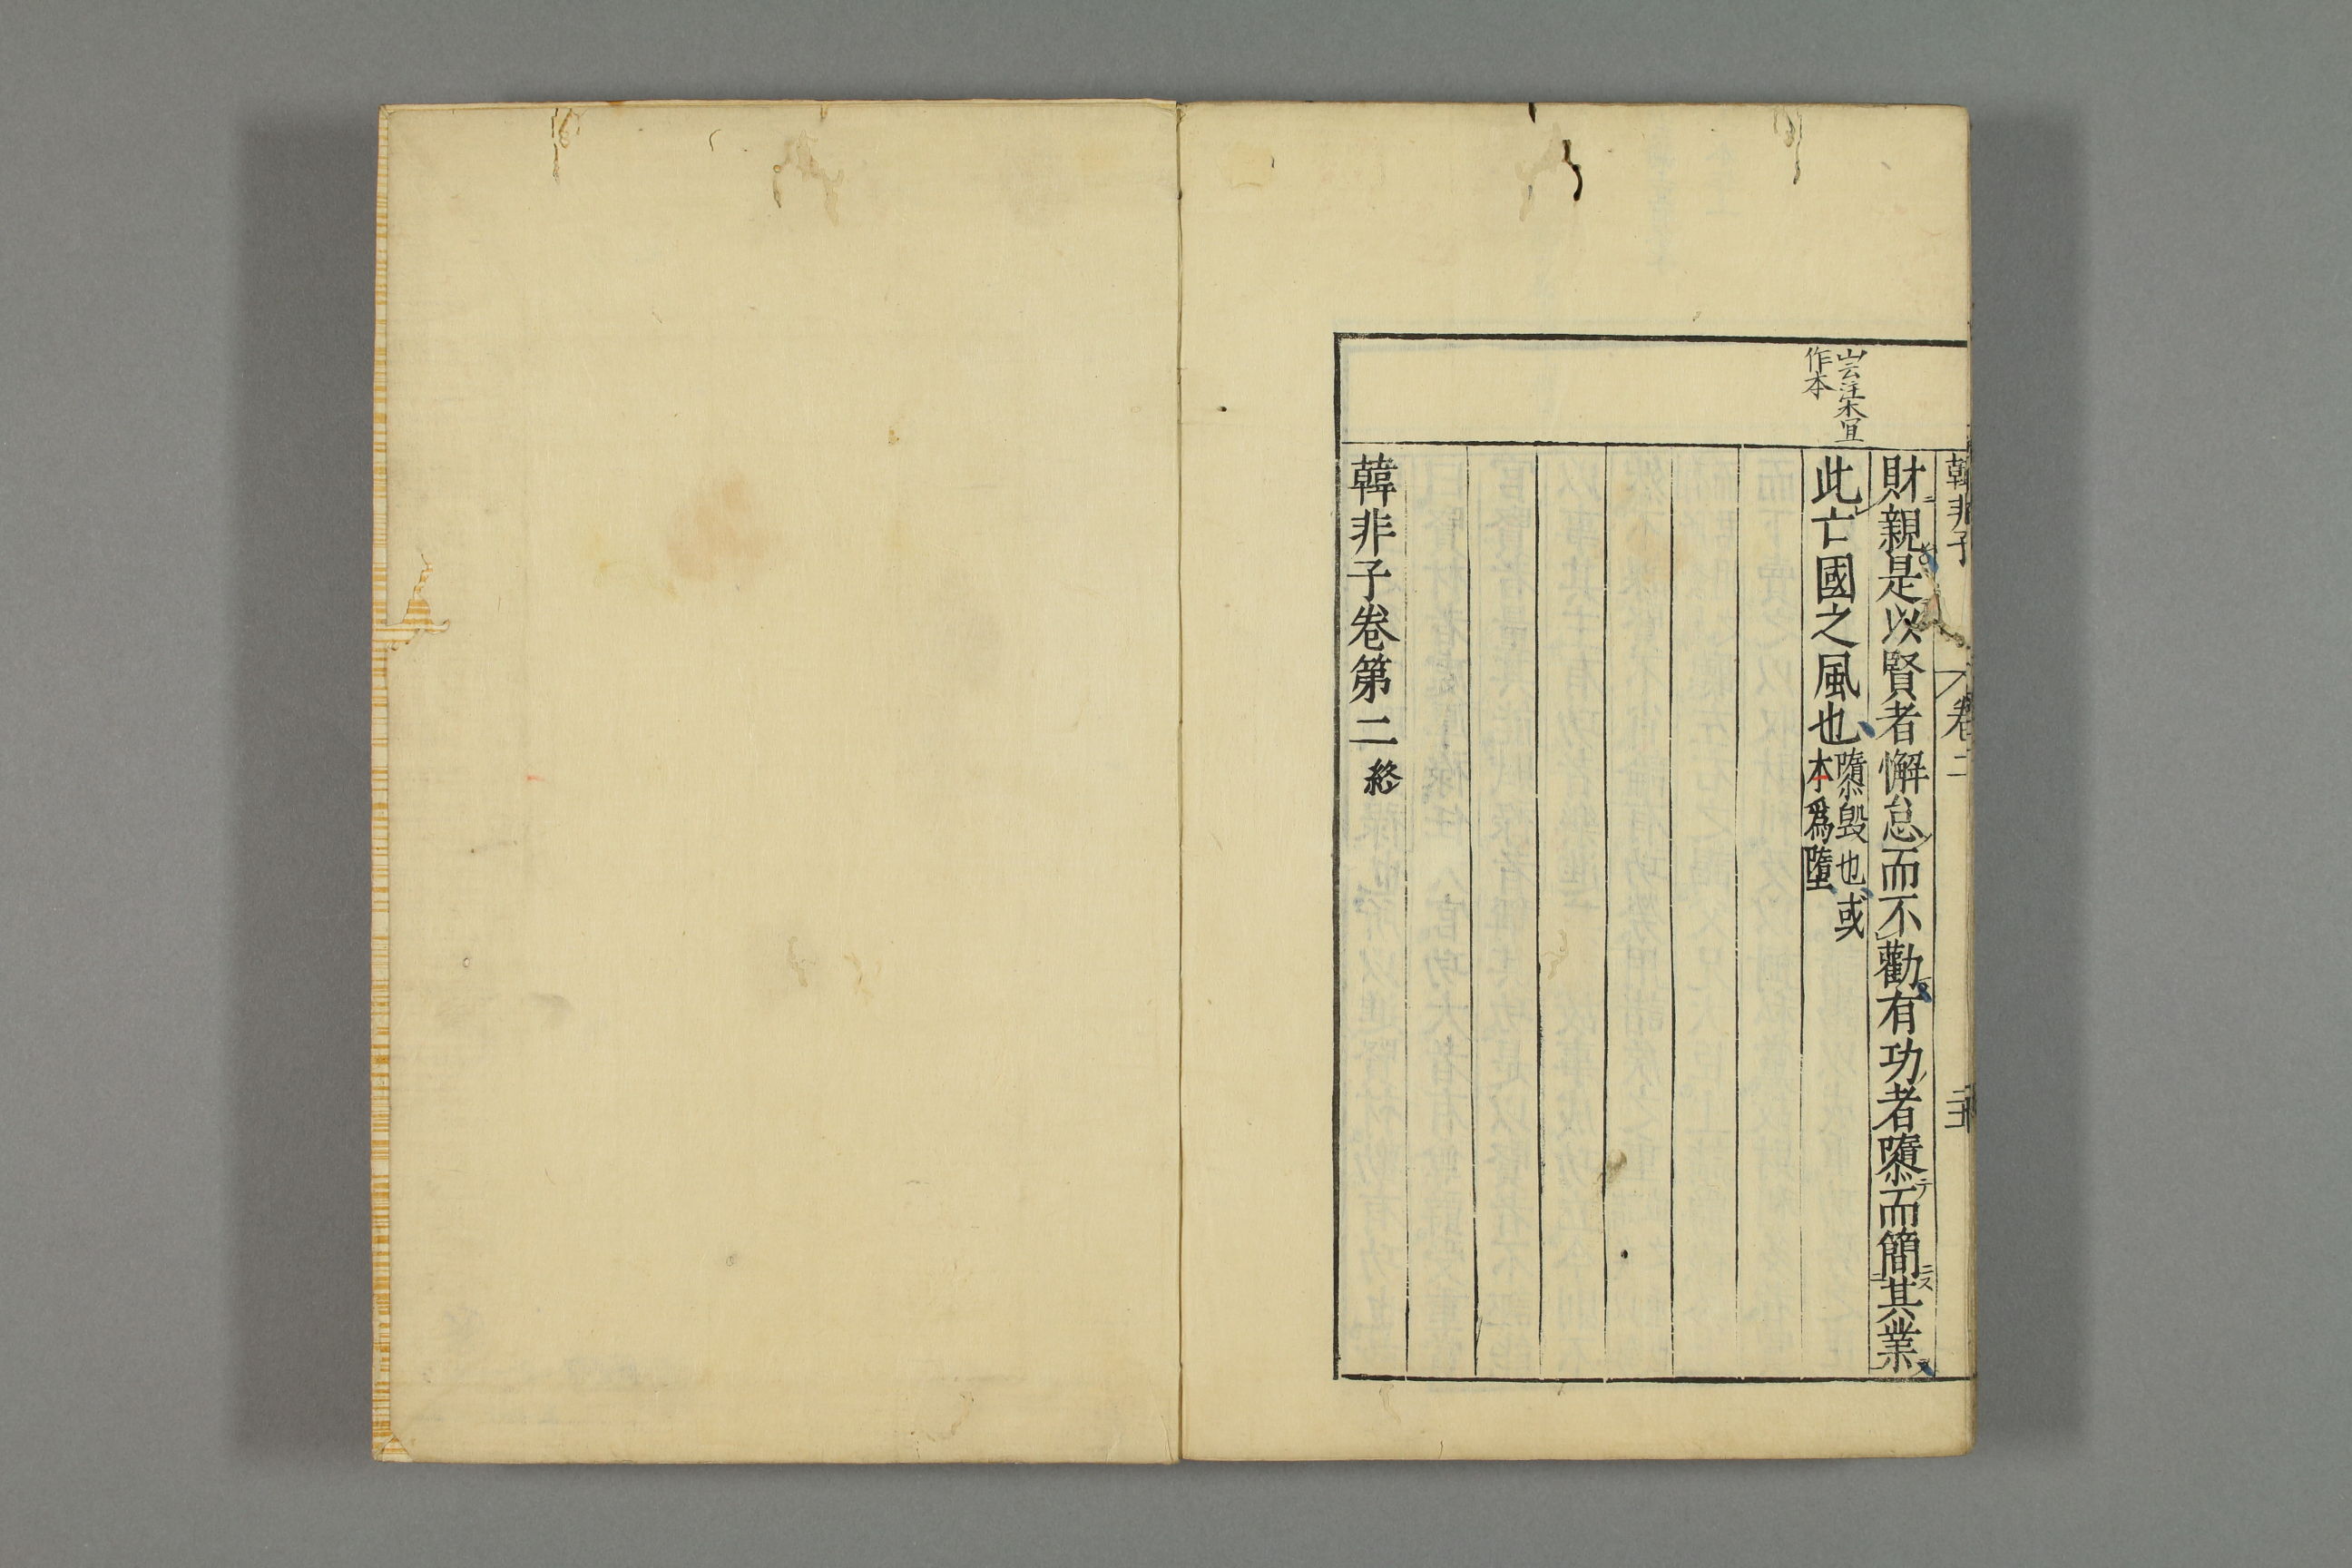 韓非子 卷二
財親是以賢者懈怠而不勸有功者隳而簡其業
山云注木宜
作本
此亡國之風也
隳毀也或
本爲墮
韓非子卷第二終